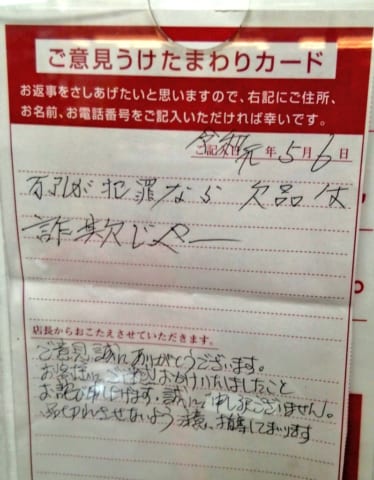 ご意見うけたまわりカード
お返事をさしあげたいと思いますので、右記にご住所、
お名前、お電話番号をご記入いただければ幸いです。
令和元年5月6日
万引が犯罪なら 欠品は
詐欺じゃー
店長からおこたえさせていただきます。
ご意見誠にありがとうございます。
お客様にご迷惑おかけいたしましたこと
お詫び申し上げます。誠に申し訳ございません。
品切れさせないよう注意、指導してまいります